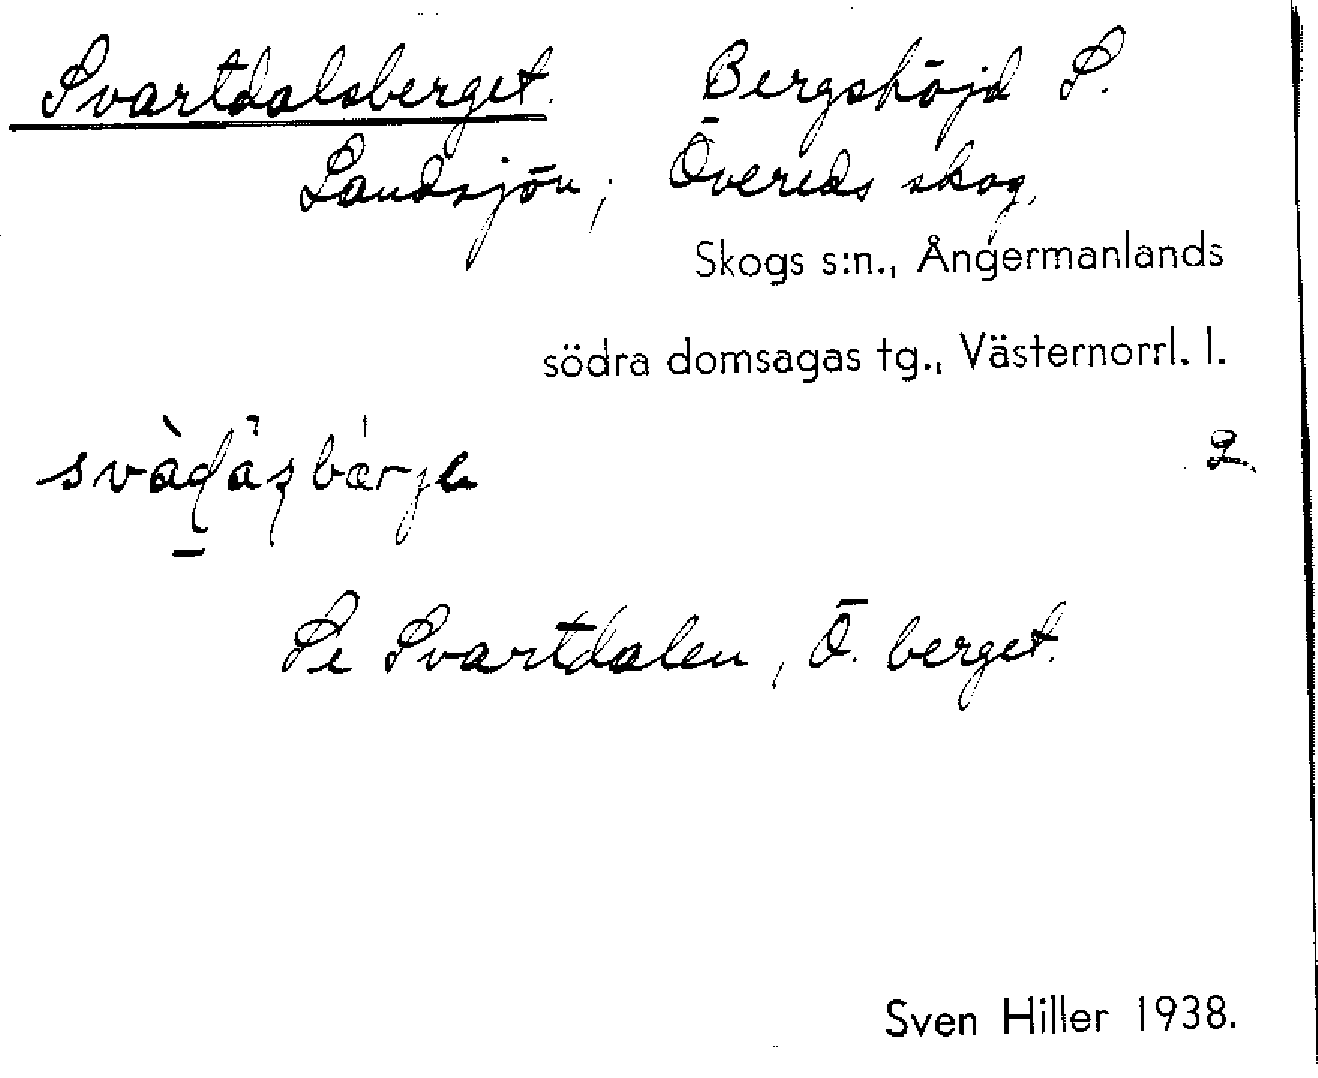 Svartdalsberget. Bergshöjd S.
Landsjön, Övereds skog,
Skogs s:n., Ångermanlands
södra domsagas tg., Västernorrl. l.
2.
Se Svartdalen, Ö. berget.
Sven Hiller 1938.